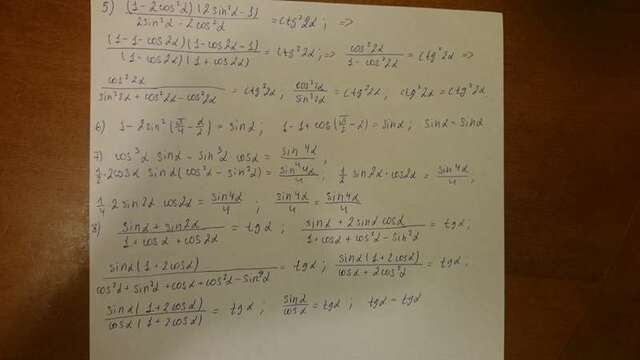 5) (1-2cos²α)(2sin²α-1) / 2sin²2α-2cos²α = ctg²2α; =>
(1-1-cos2α)(1-cos2α-1) / (1-cos2α)(1+cos2α) = ctg²2α; => cos²2α / 1-cos²2α = ctg²2α =>
cos²2α / sin²2α+cos²2α-cos²2α = ctg²2α; cos²2α / sin²2α = ctg²2α; ctg²2α = ctg²2α
6) 1-2sin²(π/4 - α/2) = sinα; 1-1+cos(π/2 - α) = sinα; sinα = sinα
7) cos³α sinα - sin³α cosα = sin4α / 4;
1/2·2cosα sinα(cos²α - sin²α) = sin4α / 4; 1/2 sin2α·cos2α = sin4α / 4;
1/4 2sin2α cos2α = sin4α / 4; sin4α / 4 = sin4α / 4
8) sinα + sin2α / 1+cosα+cos2α = tgα; sinα + 2sinα cosα / 1+cosα+cos²α-sin²α = tgα;
sinα(1+2cosα) / cos²α+sin²α+cosα+cos²α-sin²α = tgα; sinα(1+2cosα) / cosα+2cos²α = tgα;
sinα(1+2cosα) / cosα(1+2cosα) = tgα; sinα / cosα = tgα; tgα = tgα